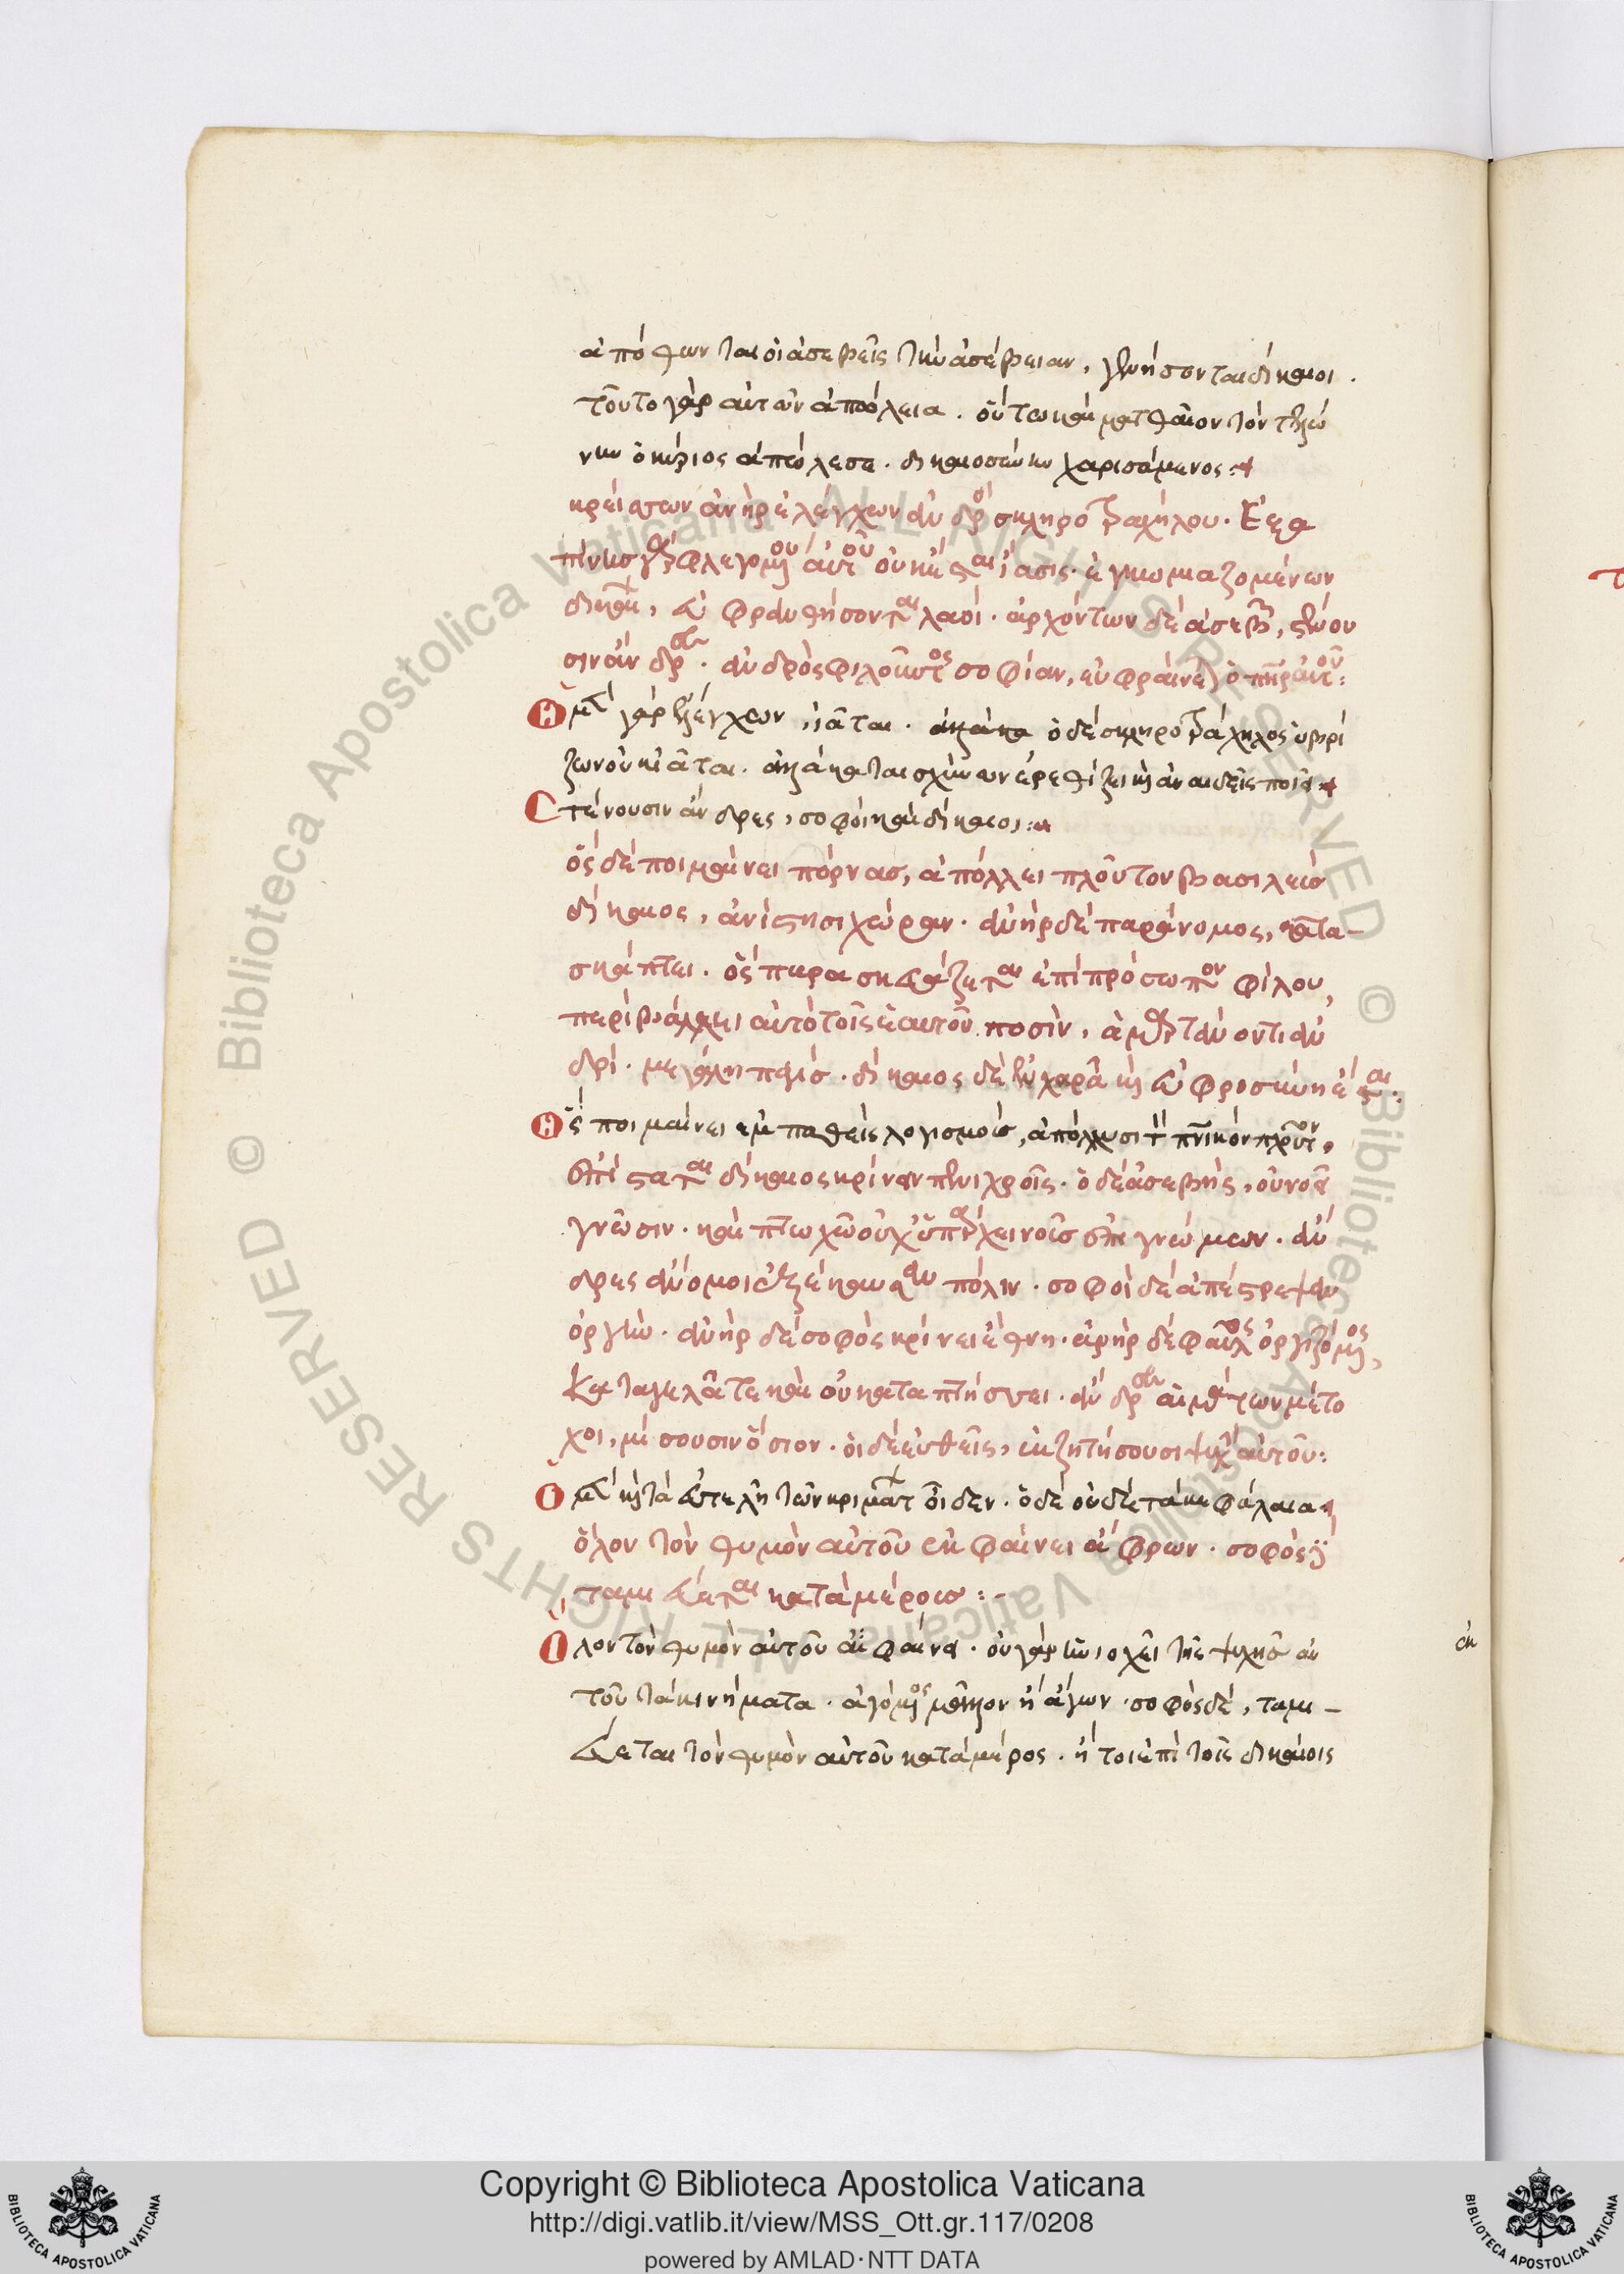 ἀπόθωνται οἱ ἀσεβεῖς τὴν ἀσέβειαν, γενήσονται δίκαιοι.
τοῦτο γὰρ αὐτῶν ἀπώλεια. οὕτω καὶ ματθαῖον τὸν τελώ
νην ὁ κύριος ἀπώλεσε. δικαιοσύνην χαρισάμενος:
κρείσσων ἀνὴρ ἐλέγχων ἀνδρὸς σκληροτραχήλου. Ἐξα
πίνης γὰρ φλεγομένου αὐτοῦ οὐκ ἔσται ἴασις. ἐγκωμιαζομένων
δικαίων, εὐφρανθήσονται λαοί. ἀρχόντων δὲ ἀσεβῶν, στένου
σιν ἄνδρες. ἀνδρὸς φιλοῦντος σοφίαν, εὐφραίνεται ὁ πατὴρ αὐτοῦ:
Ὁ μὲν γὰρ ἐλέγχων, ἰᾶται. ὁ δὲ σκληροτράχηλος ὑβρί
ζων οὐκ ἰᾶται. ἀλλὰ καταισχύνων ἐρεθίζει καὶ ἀναιδεῖς ποιεῖ:
Στένουσιν ἄνδρες, σοφοὶ καὶ δίκαιοι:
ὃς δὲ ποιμαίνει πόρνας, ἀπόλλει πλοῦτον βασιλεὺς
δίκαιος, ἀνίστησι χώραν. ἀνὴρ δὲ παράνομος, κατα-
σκάπτει. ὃς παρασκευάζεται ἐπὶ πρόσωπον φίλου,
περιβάλλει αὐτὸ τοῖς ἑαυτοῦ ποσὶν, ἁμαρτάνοντι ἀν
δρὶ. μεγάλη παγίς. δίκαιος δὲ ἐν χαρᾷ καὶ εὐφροσύνῃ ἔσται.
Ὃς ποιμαίνει ἐμπαθεῖς λογισμοὺς, ἀπόλλυσι τὸν πνευματικὸν πλοῦτον,
ἐπίσταται δίκαιος κρίνειν πενιχροῖς. ὁ δὲ ἀσεβὴς, οὐ νοεῖ
γνῶσιν. καὶ πτωχῷ οὐχ ὑπάρχει νοῦς ἐπιγνώμων. ἄν
δρες ἄνομοι ἐξέκαυσαν πόλιν. σοφοὶ δὲ ἀπέστρεψαν
ὀργήν. ἀνὴρ δὲ σοφὸς κρίνει ἔθνη. ἀνὴρ δὲ φαῦλος ὀργιζόμενος,
καταγελᾶται καὶ οὐ καταπτήσσει. ἄνδρες αἱμάτων μέτο
χοι, μισοῦσιν ὅσιον. οἱ δὲ εὐθεῖς, ἐκζητήσουσι ψυχὴν αὐτοῦ:
Ὁ μὲν καὶ τὰ εὐτελῆ τῶν κριμάτων οἶδεν. ὁ δὲ οὐδὲ τὰ κεφάλαια
ὅλον τὸν θυμὸν αὐτοῦ ἐκφαίνει ἄφρων. σοφὸς δὲ
ταμιεύεται κατὰ μέρος:-
Ὅλον τὸν θυμὸν αὐτοῦ ἐκφαίνει. οὐ γὰρ ἡνιοχεῖ τῆς ψυχῆς αὐ
τοῦ τὰ κινήματα. ἀγόμενος μᾶλλον ἢ ἄγων. σοφὸς δὲ, ταμι-
εύεται τὸν θυμὸν αὐτοῦ κατὰ μέρος. ἤτοι ἐπὶ τοῖς δικαίοις
ἐκ
© Biblioteca Apostolica Vaticana ALL RIGHTS RESERVED © Biblioteca Apostolica Vaticana ALL RIGHTS RESERVED
BIBLIOTECA APOSTOLICA VATICANA
Copyright © Biblioteca Apostolica Vaticana
http://digi.vatlib.it/view/MSS_Ott.gr.117/0208
powered by AMLAD·NTT DATA
BIBLIOTECA APOSTOLICA VATICANA